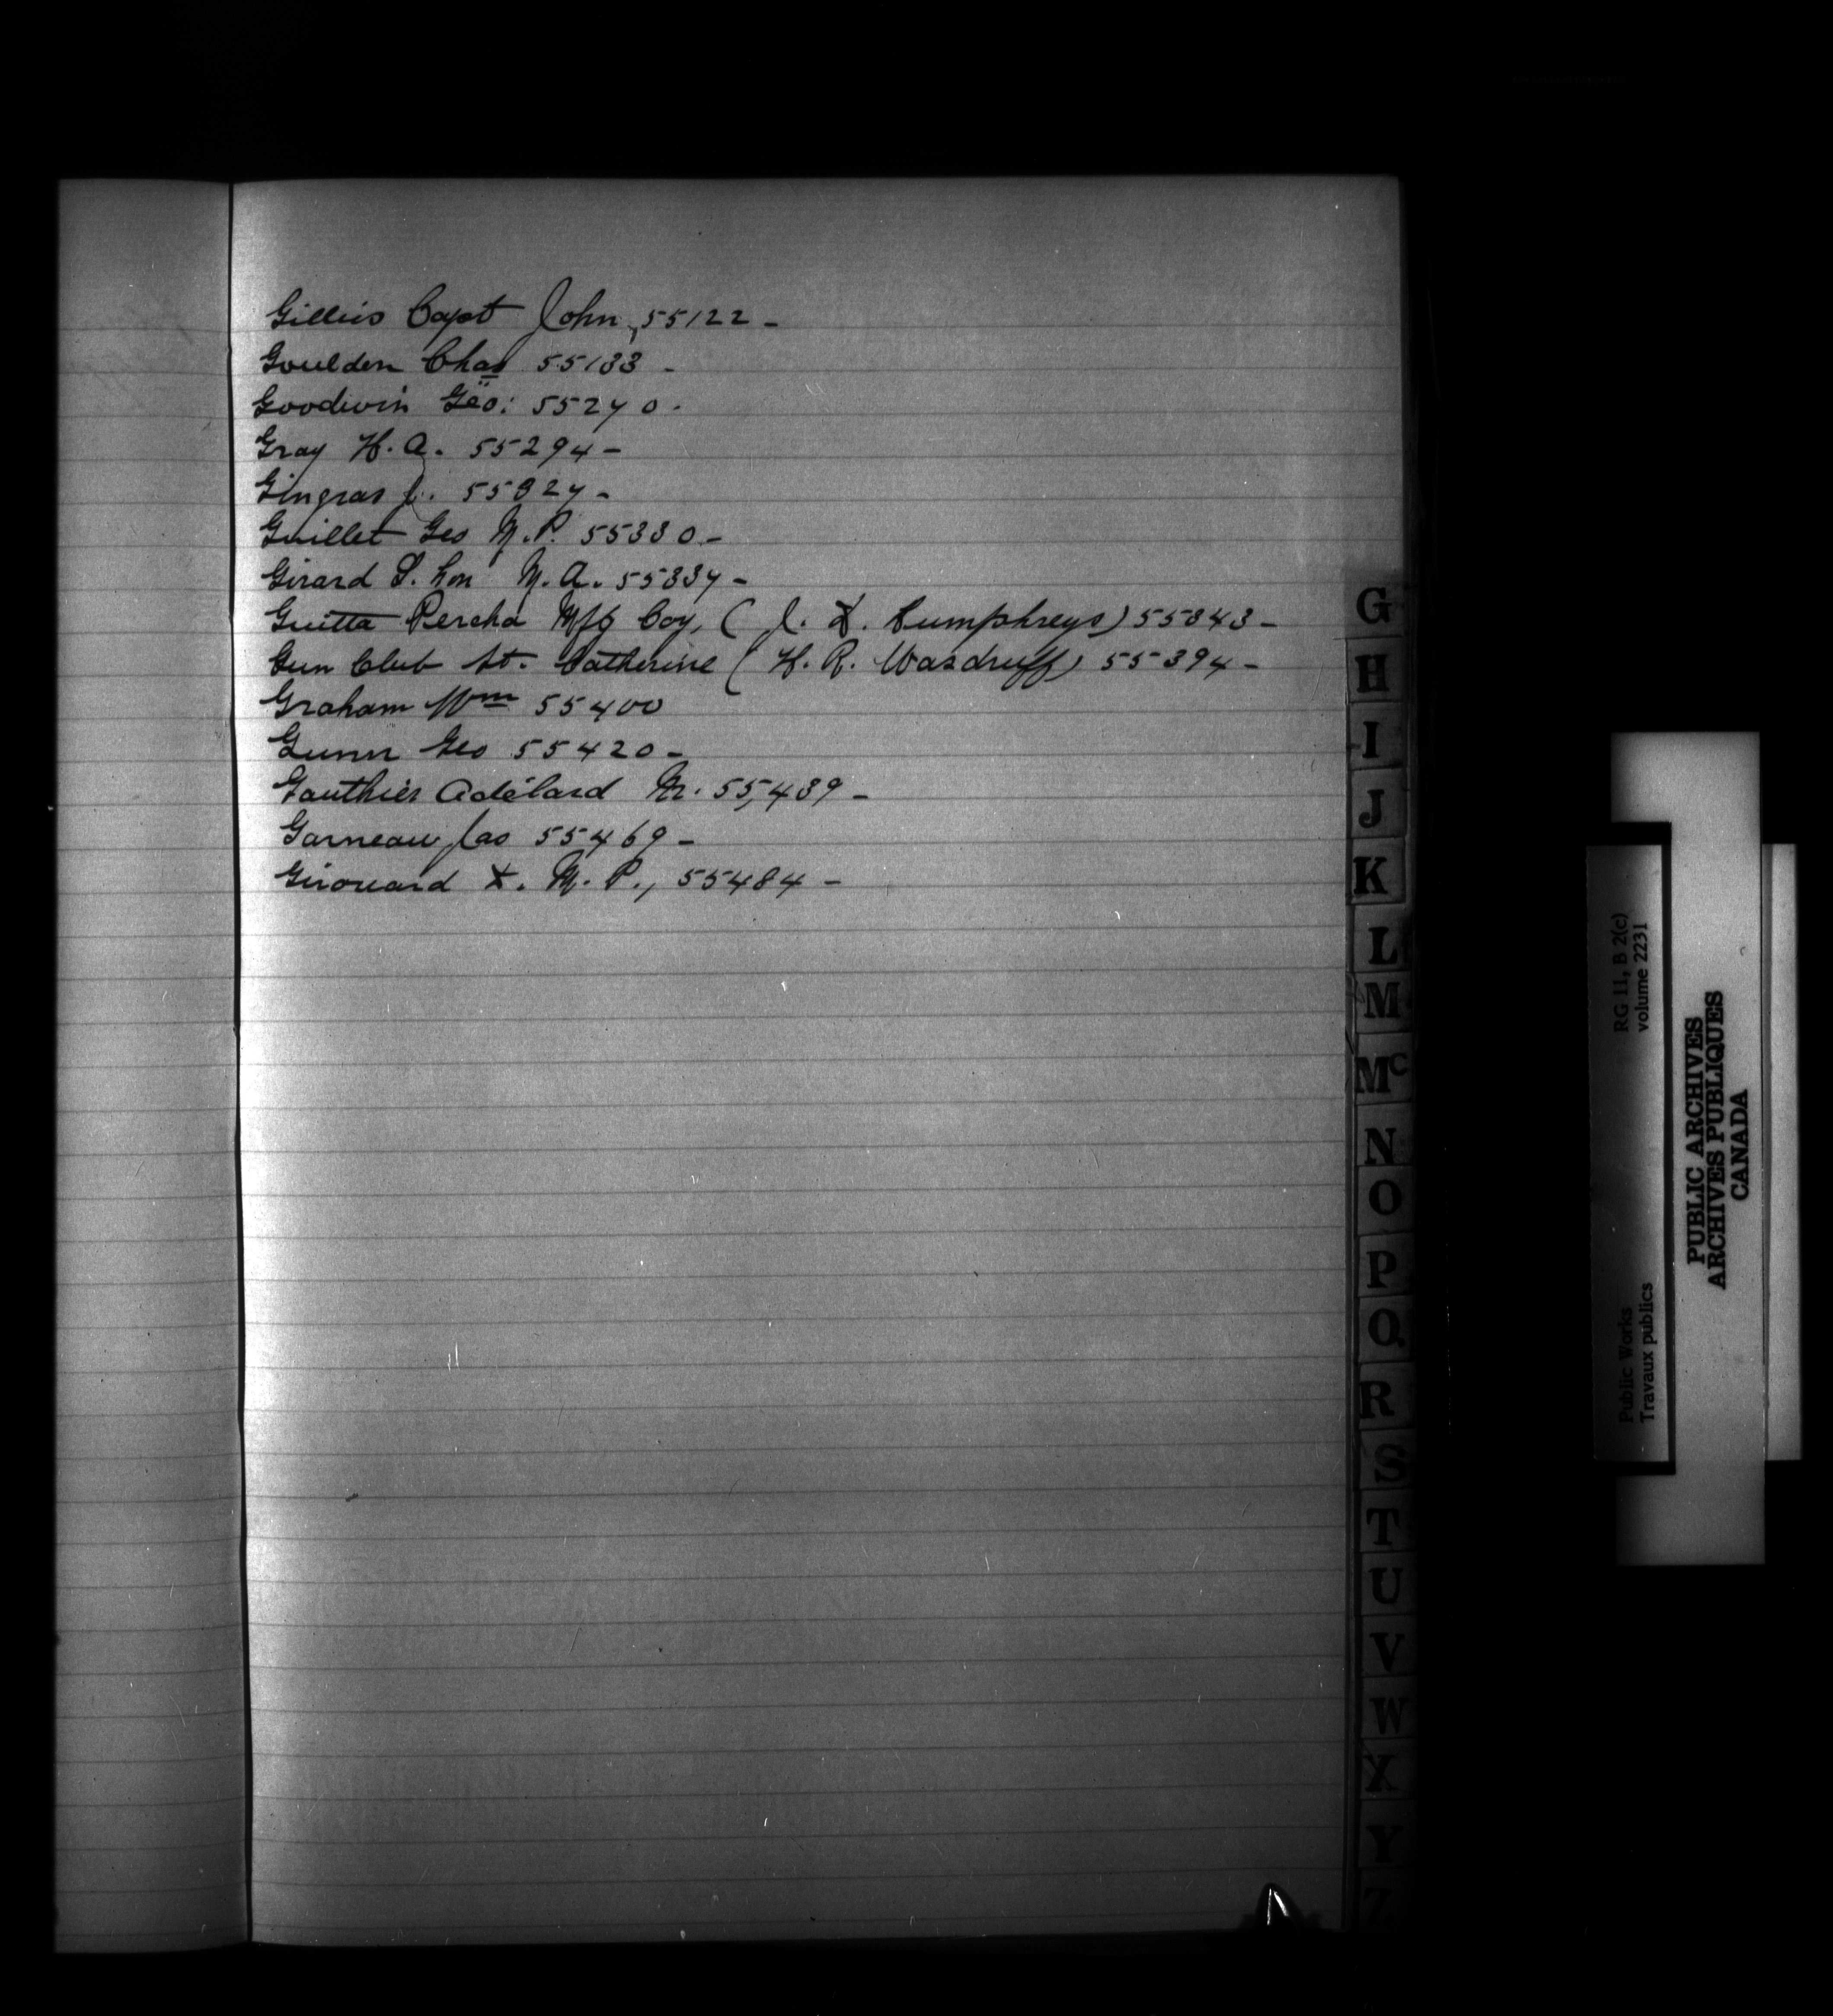 Gillies Capt John, 55122 -
Goulden Chas 55133 -
Goodwin Geo: 55270 -
Gray H. A. 55294 -
Gingras J. 55327 -
Guillet Geo M.P. 55330 -
Girard S. hon M. A. 55337 -
Guitta Percha Mfg Coy, ( J. X. Humphreys) 55343 -
Gun Club St. Catherine ( H. R. Wasdruff) 55394 -
Graham Wm 55400
Gunn Geo 55420 -
Gauthier Adélard Mr. 55,439 -
Garneau Jas 55469 -
Girouard X. M. P., 55484 -
G
H
I
J
K
L
M
Mc
N
O
P
Q
R
S
T
U
V
W
X
Y
Z
RG 11, B 2(c)
volume 2231
Public Works
Travaux publics
PUBLIC ARCHIVES
ARCHIVES PUBLIQUES
CANADA